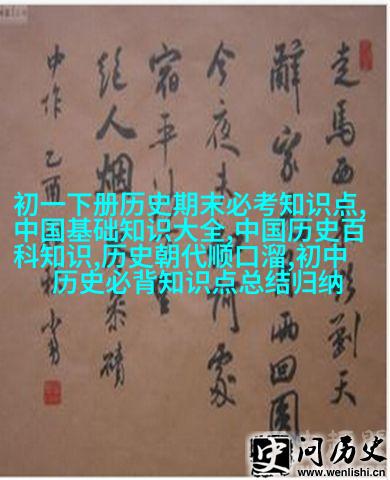 走馬西 到天
辭家 兩回圓
今夜未 處
宿平
絕人烟 磧
中作 乙酉
初一下册历史期末必考知识点,
中国基础知识大全,中国历史百
科知识,历史朝代顺口溜,初中
历史必背知识点总结归纳
史 问历史
www.wenlishi.cn